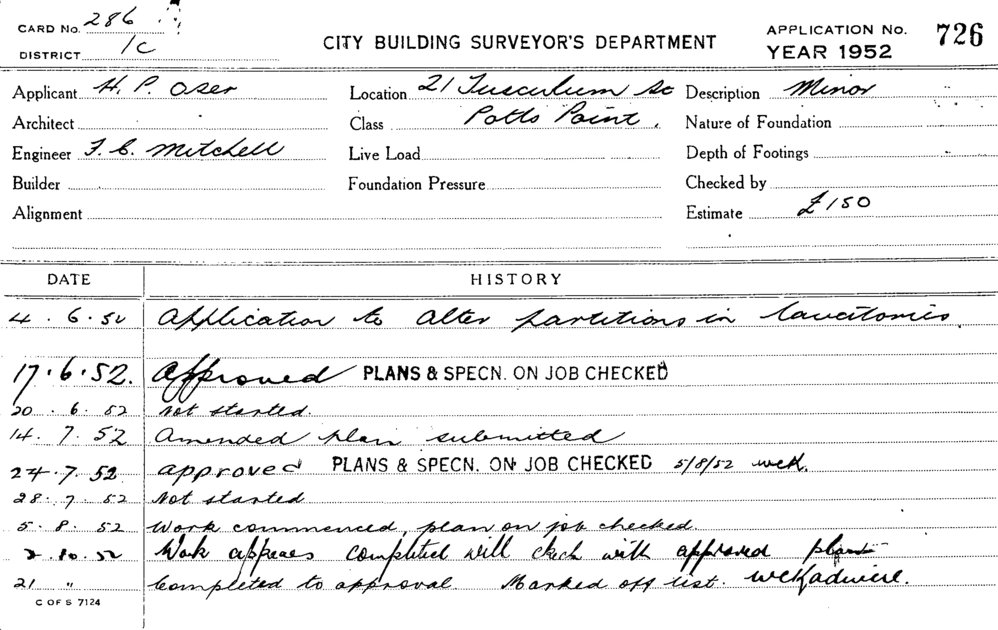 CARD No. 286
DISTRICT 1C
CITY BUILDING SURVEYOR'S DEPARTMENT
APPLICATION No. 726
YEAR 1952
Applicant H. P. Oser Location 21 Tusculum St Description Minor
Architect Class Potts Point. Nature of Foundation
Engineer F. C. Mitchell Live Load Depth of Footings
Builder Foundation Pressure Checked by
Alignment Estimate £150
DATE HISTORY
4.6.52 Application to alter partitions in
17.6.52. Approved PLANS & SPECN. ON JOB CHECKED
20.6.52 Not started.
14.7.52 Amended plan submitted
24.7.52 approved PLANS & SPECN. ON JOB CHECKED 5/8/52 WCK.
28.7.52 Not started
5.8.52 Work commenced, plan on job checked
2.10.52 Work appears completed will check with approved plan
21 " Completed to approval. Marked off list. WCK
C OF S 7124